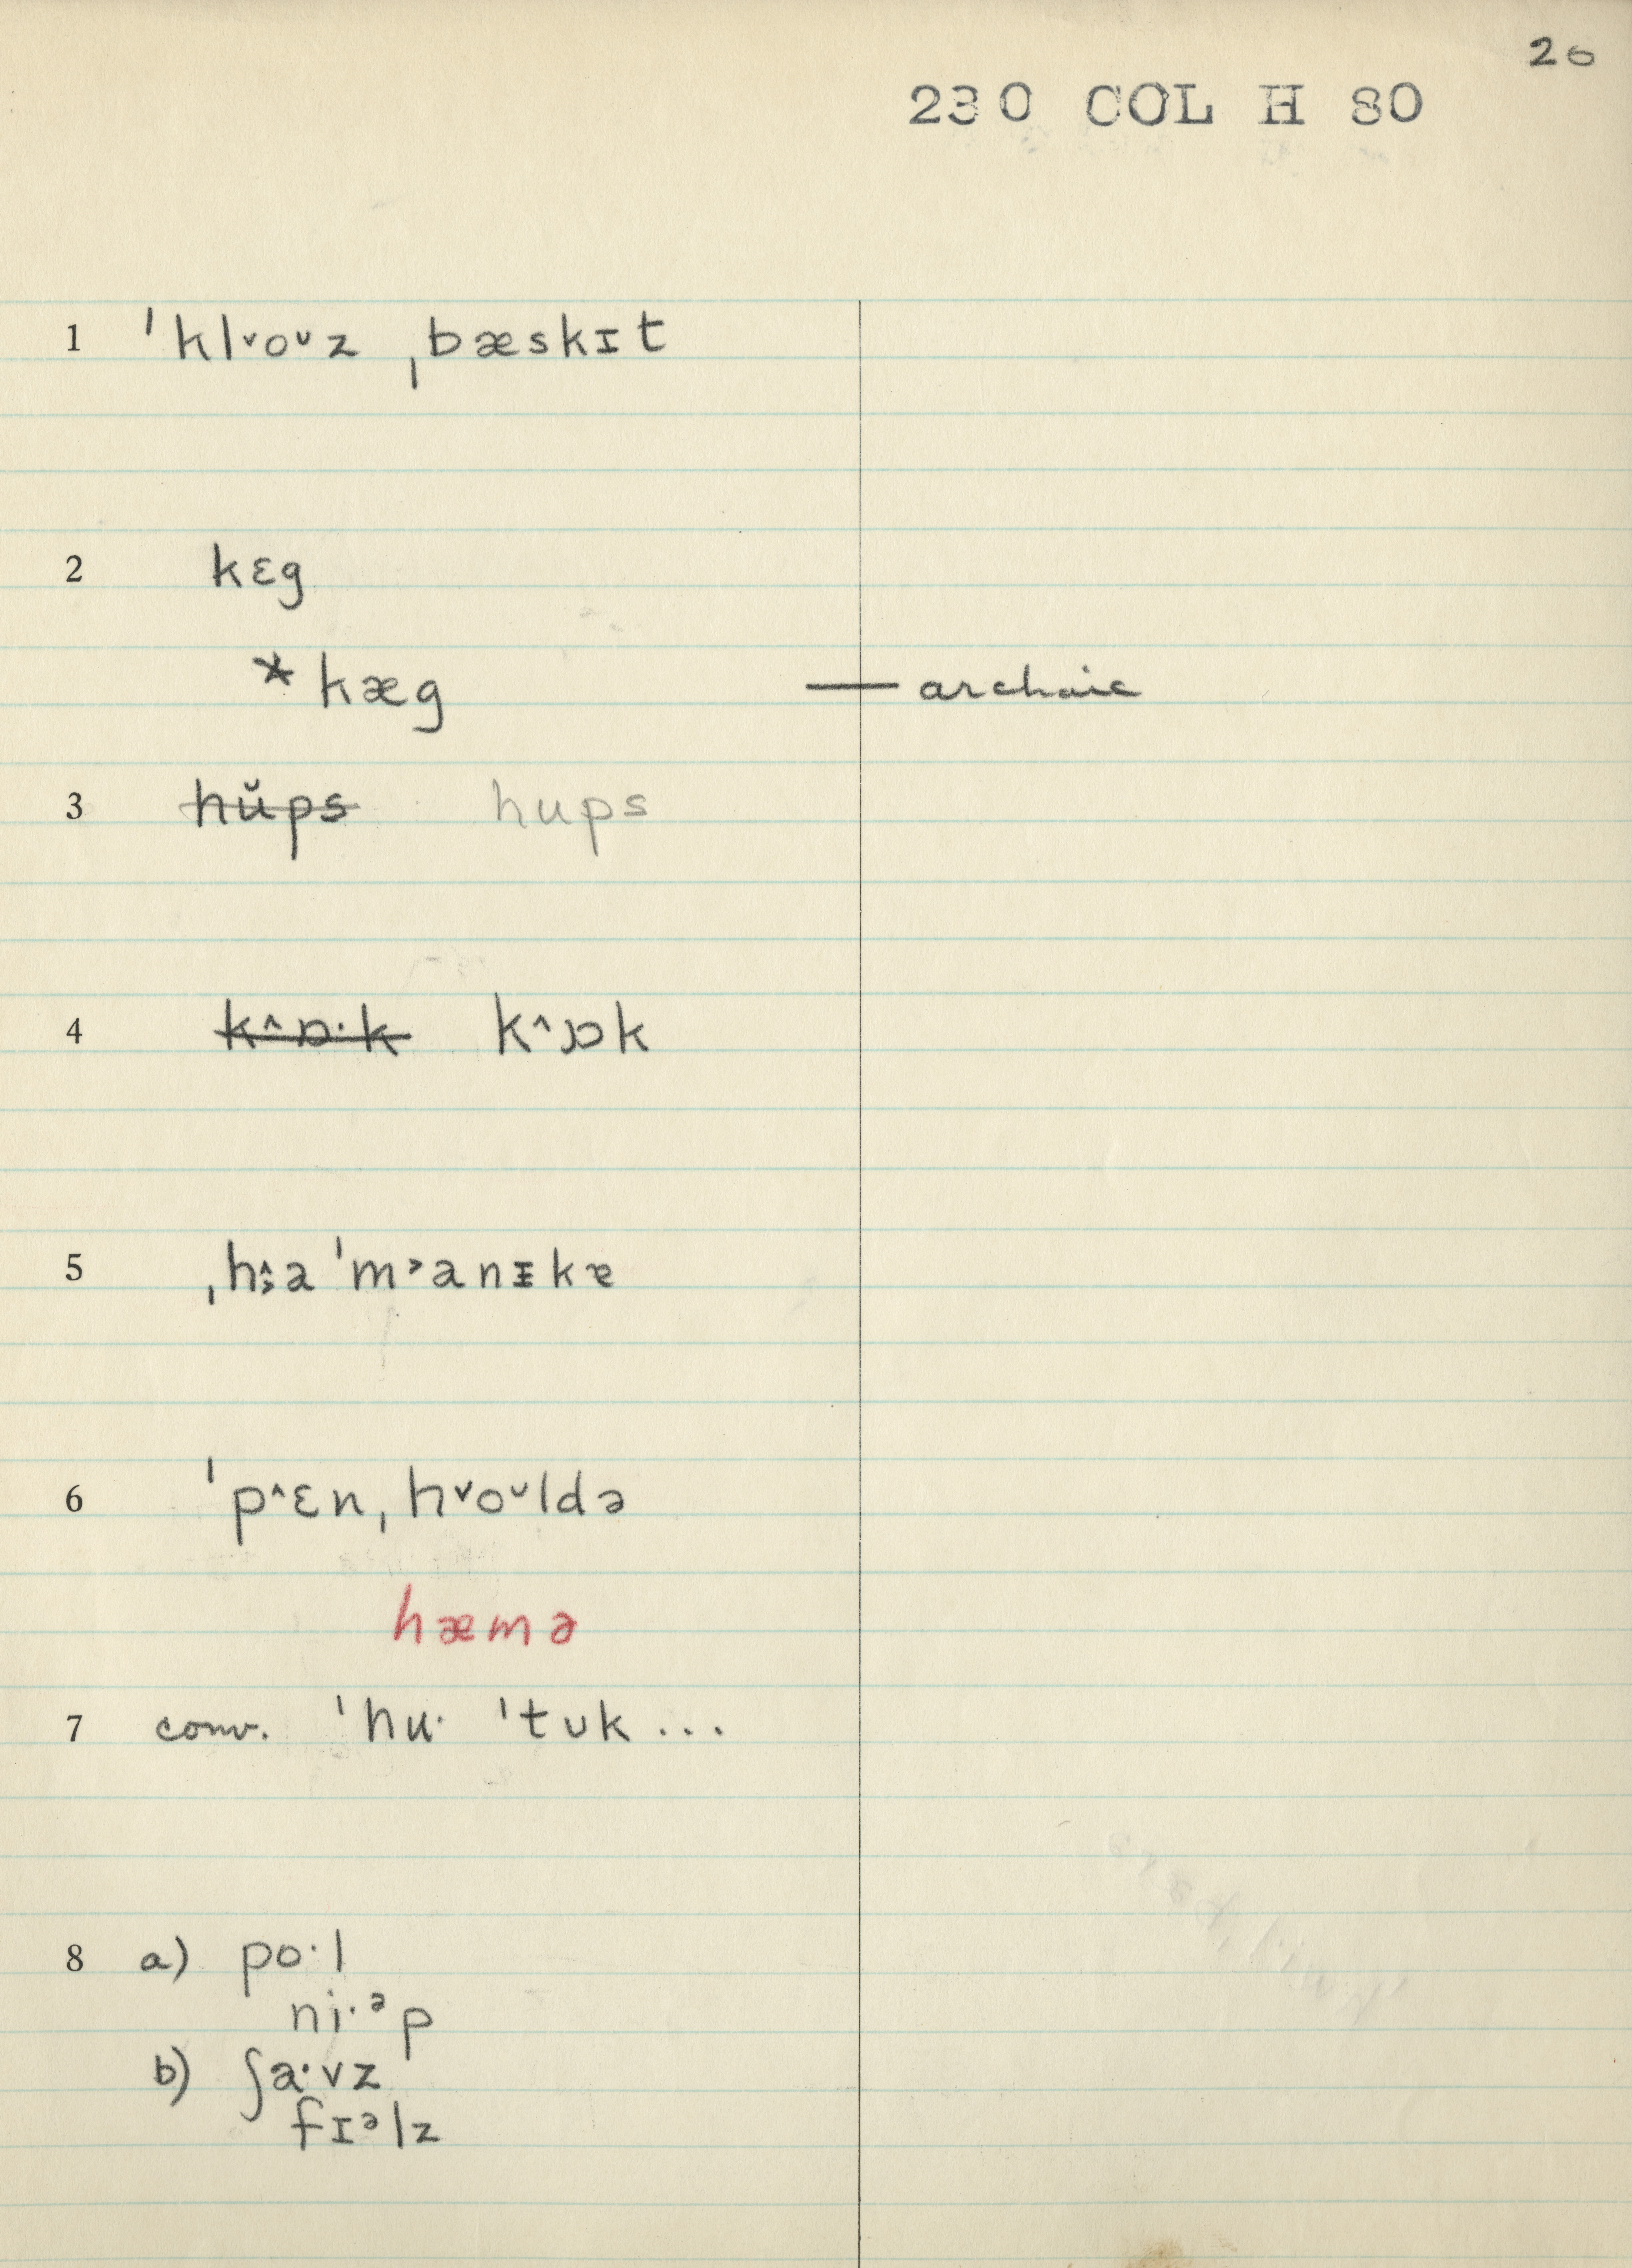 20
230 COL H 80
1 ˈkl˅oᴗz ˌbæskɪt
2 kɛg
*kæg — archaic
3 hŭps hups
4 k^ɒ·k k^ɔɒk
5 ˌhɜa ˈm˃anɪkɐ
6 ˈp^ɛnˌh˅oᴗldə
hæmə
7 conv. ˈhu· ˈtʊk ...
8 a) po·l
ni·ᵊp
b) ʃa·vz
fɪᵊlz